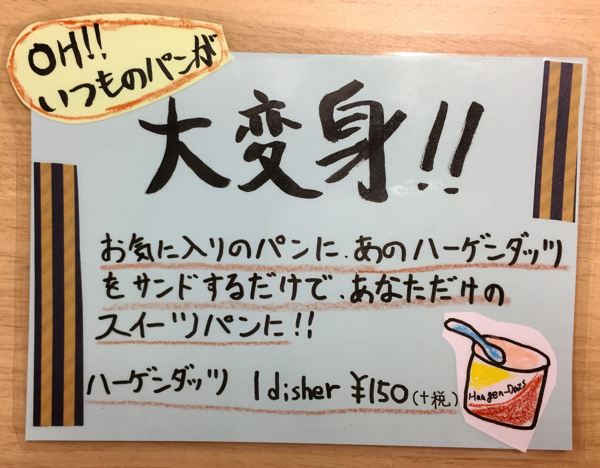 OH!!
いつものパンが
大変身!!
お気に入りのパンに、あのハーゲンダッツ
をサンドするだけで、あなただけの
スイーツパンに!!
ハーゲンダッツ 1disher ¥150(+税)
Haagen-Dazs